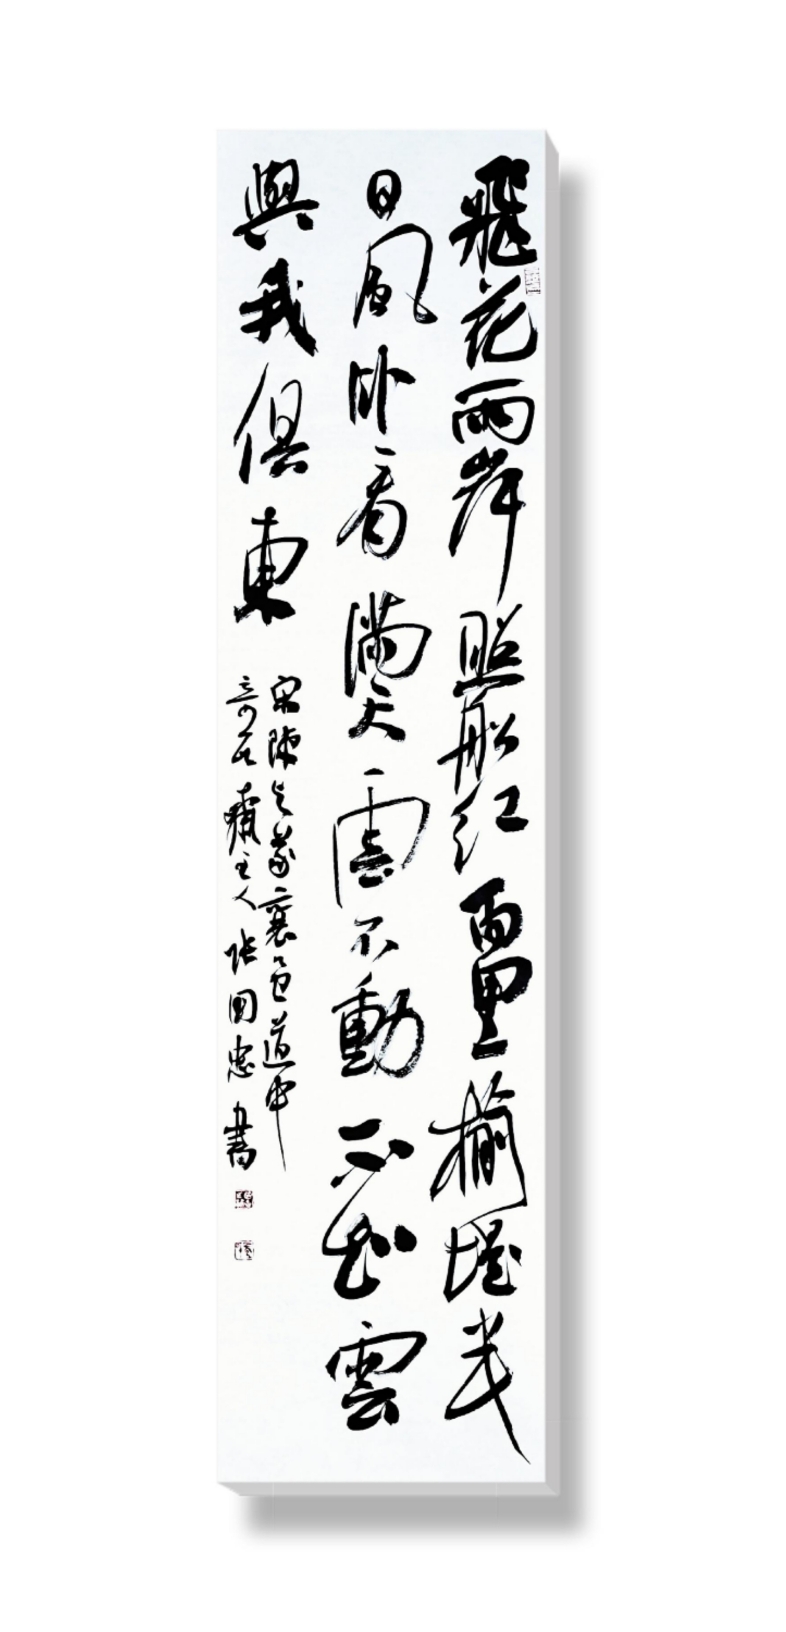 飛花兩岸照船紅百里榆堤半
日風卧看滿天雲不動不知雲
與我俱東
宋陳与義襄邑道中
齋主人張國忠書